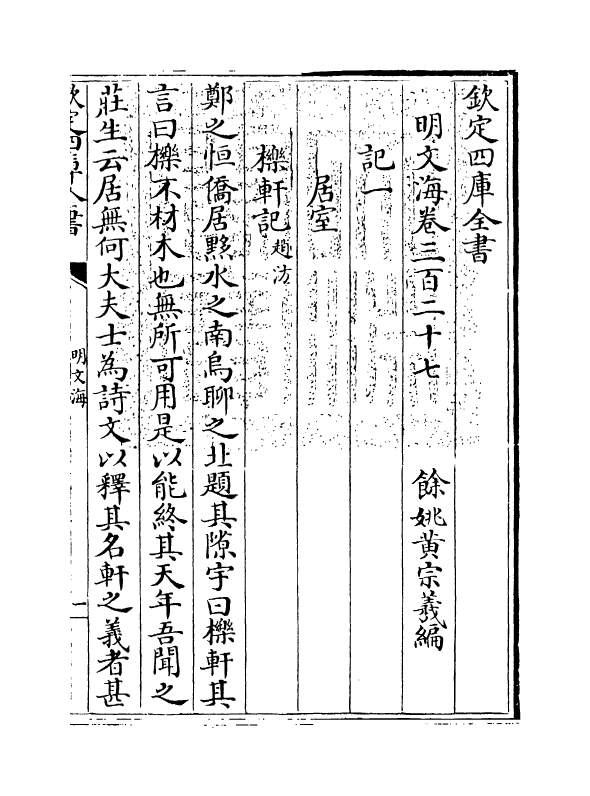 欽定四庫全書
明文海卷三百二十七
餘姚黃宗羲編
記一
居室
櫟軒記 趙汸
鄭之恒僑居黟水之南烏聊之北題其隙宇曰櫟軒其
言曰櫟不材木也無所可用是以能終其天年吾聞之
莊生云居無何大夫士為詩文以釋其名軒之義者甚
欽定四庫全書
明文海
一